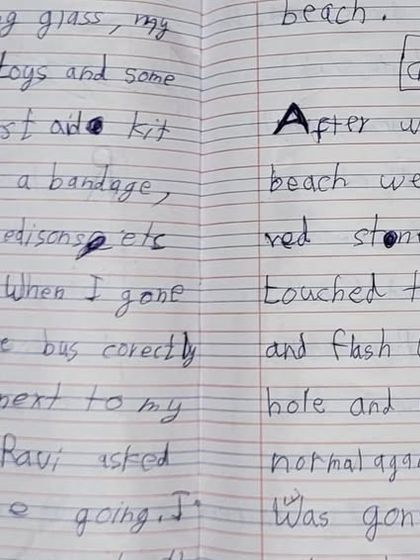 g glass, my
toys and some
st aid kit
a bandage,
edisons ets
When I gone
e bus corectly
next to my
Ravi asked
e going. I
beach.
After w
beach we
red ston
touched t
and flash
hole and
normal agai
Was gon